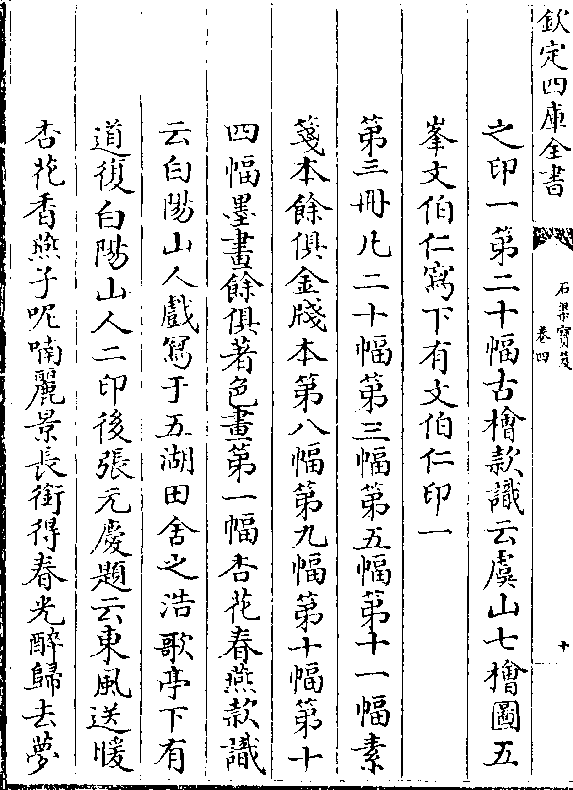 欽定四庫全書
石渠寶笈
卷四
十
之印一第二十幅古檜款識云虞山七檜圖五
峯文伯仁寫下有文伯仁印一
第三冊凡二十幅第三幅第五幅第十一幅素
箋本餘俱金牋本第八幅第九幅第十幅第十
四幅墨畫餘俱著色畫第一幅杏花春燕款識
云白陽山人戲寫于五湖田舍之浩歌亭下有
道復白陽山人二印後張元慶題云東風送暖
杏花香燕子呢喃麗景長銜得春光醉歸去夢